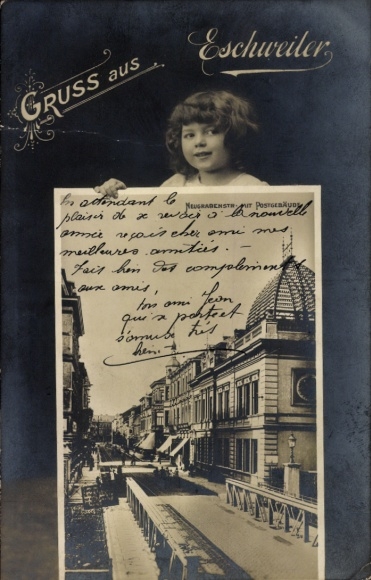 GRUSS AUS
Eschweiler
NEUGRABENSTR. MIT POSTGEBÄUDE
En attendant le
plaisir de se revoir à la nouvelle
année reçois cher ami mes
meilleures amitiés. -
Fais bien des compliments
aux amis
ton ami Jean
qui se porte et
s'amuse très
bien. -